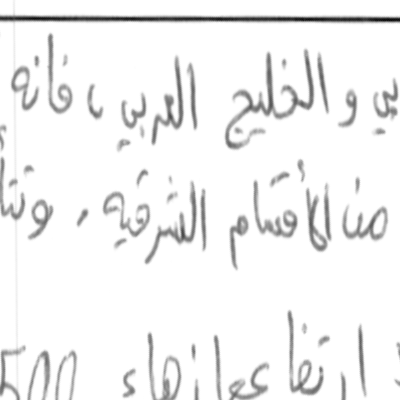 بي و الخليج العربي ، فانه
من الأقسام الشرقيه ، وتتأ
ارتفاعها زهاء 500